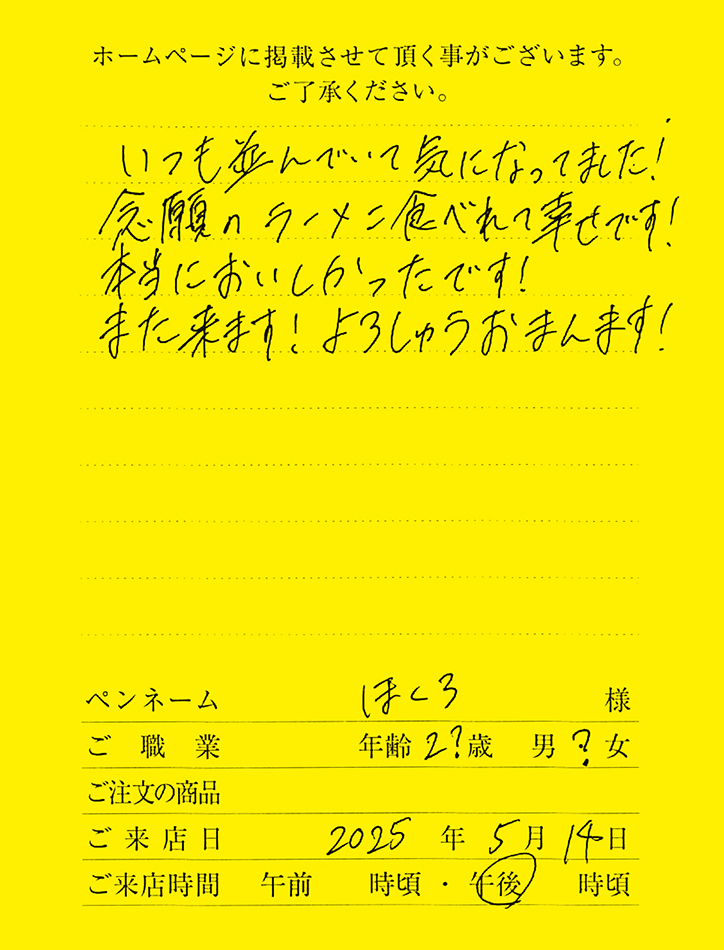 ホームページに掲載させて頂く事がございます。
ご了承ください。
いつも並んでいて気になってました!
念願のラーメン食べれて幸せです!
本当においしかったです!
また来ます!よろしゅうおまんます!
ペンネーム ほくろ 様
ご職業 年齢 2?歳 男 ? 女
ご注文の商品
ご来店日 2025 年 5 月 14 日
ご来店時間 午前 時頃・午後 時頃